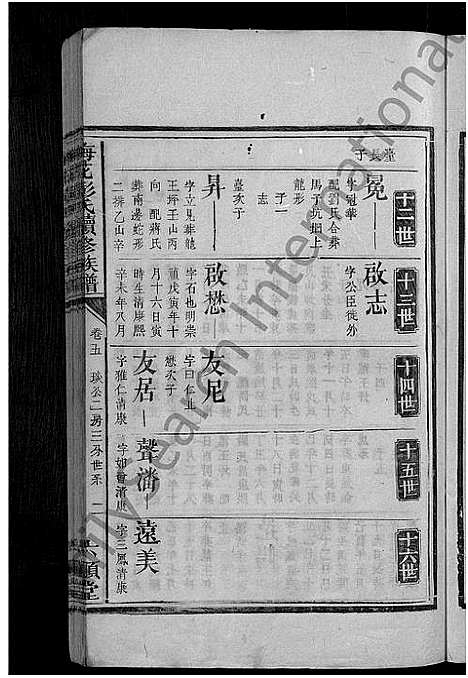 堂長子
十二世
十三世
十四世
十五世
十六世
冕
字冠華
配劉氏合葬
馬子坑坳上
龍形
子一
志
臺次子
啟志
字公臣徙外
昇
字立見葬龍
王坪壬山丙
向 配蔣氏
葬南邊蛇形
二排乙山辛
啟懋
字石也明崇
禎戊寅年十
月十六日寅
時生清康熙
辛未年八月
友尼
字曰仁止
懋次子
友居
字雅仁清康
聲潘
字如會清康
遠美
字三鳳清康
梅花彭氏續修族譜
卷五 琰公二房三分世系 二
六順堂
Family Search International